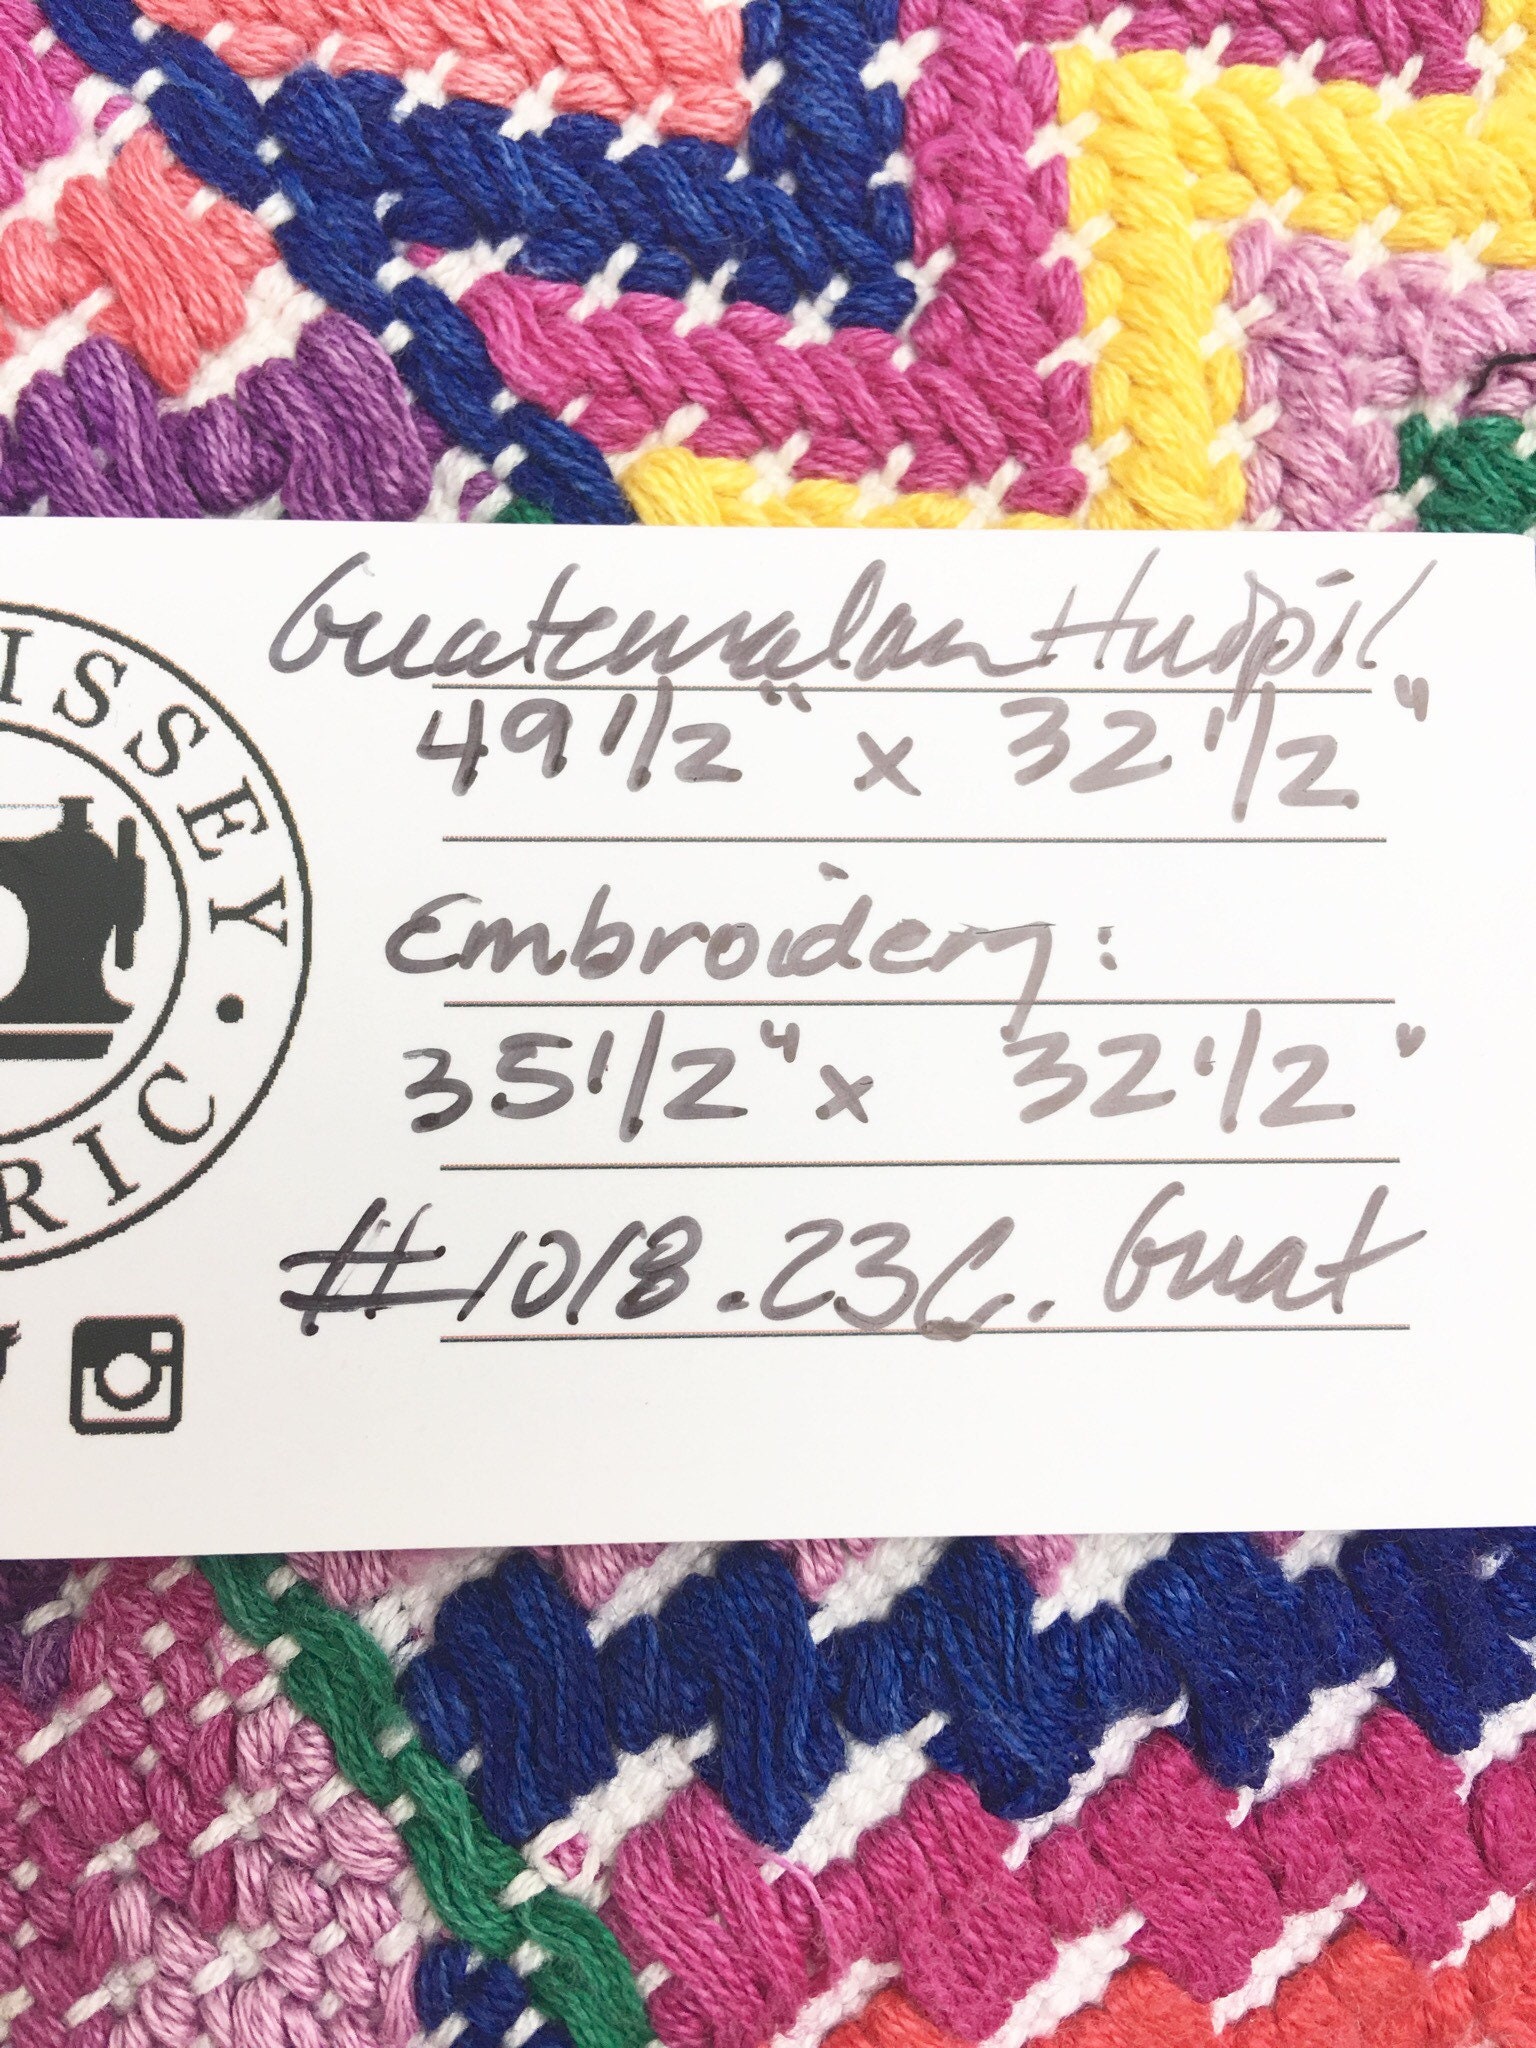 Guatemalan Huipil
49 1/2" x 32 1/2"
Embroidery:
35 1/2" x 32 1/2"
#1018.23C. Guat
ISSEY •
RIC